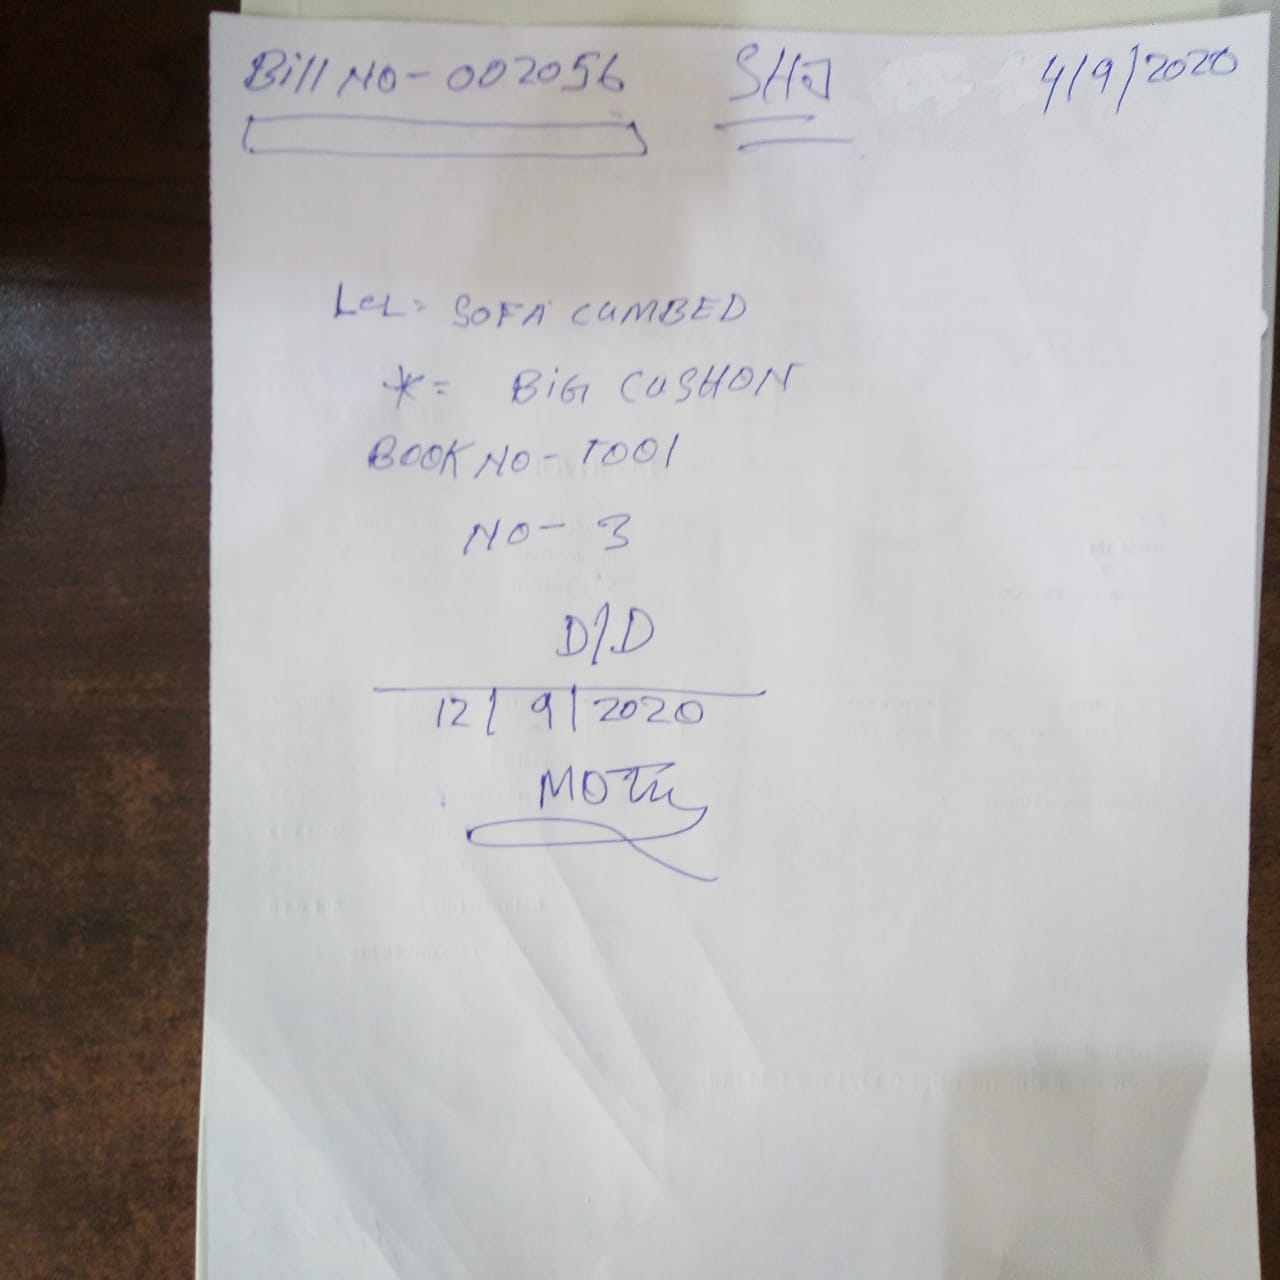 Bill NO - 002056 SHJ 4/9/2020
LCL = SOFA CUMBED
* = BIG CUSHON
BOOK NO - T001
NO - 3
D/D
12/9/2020